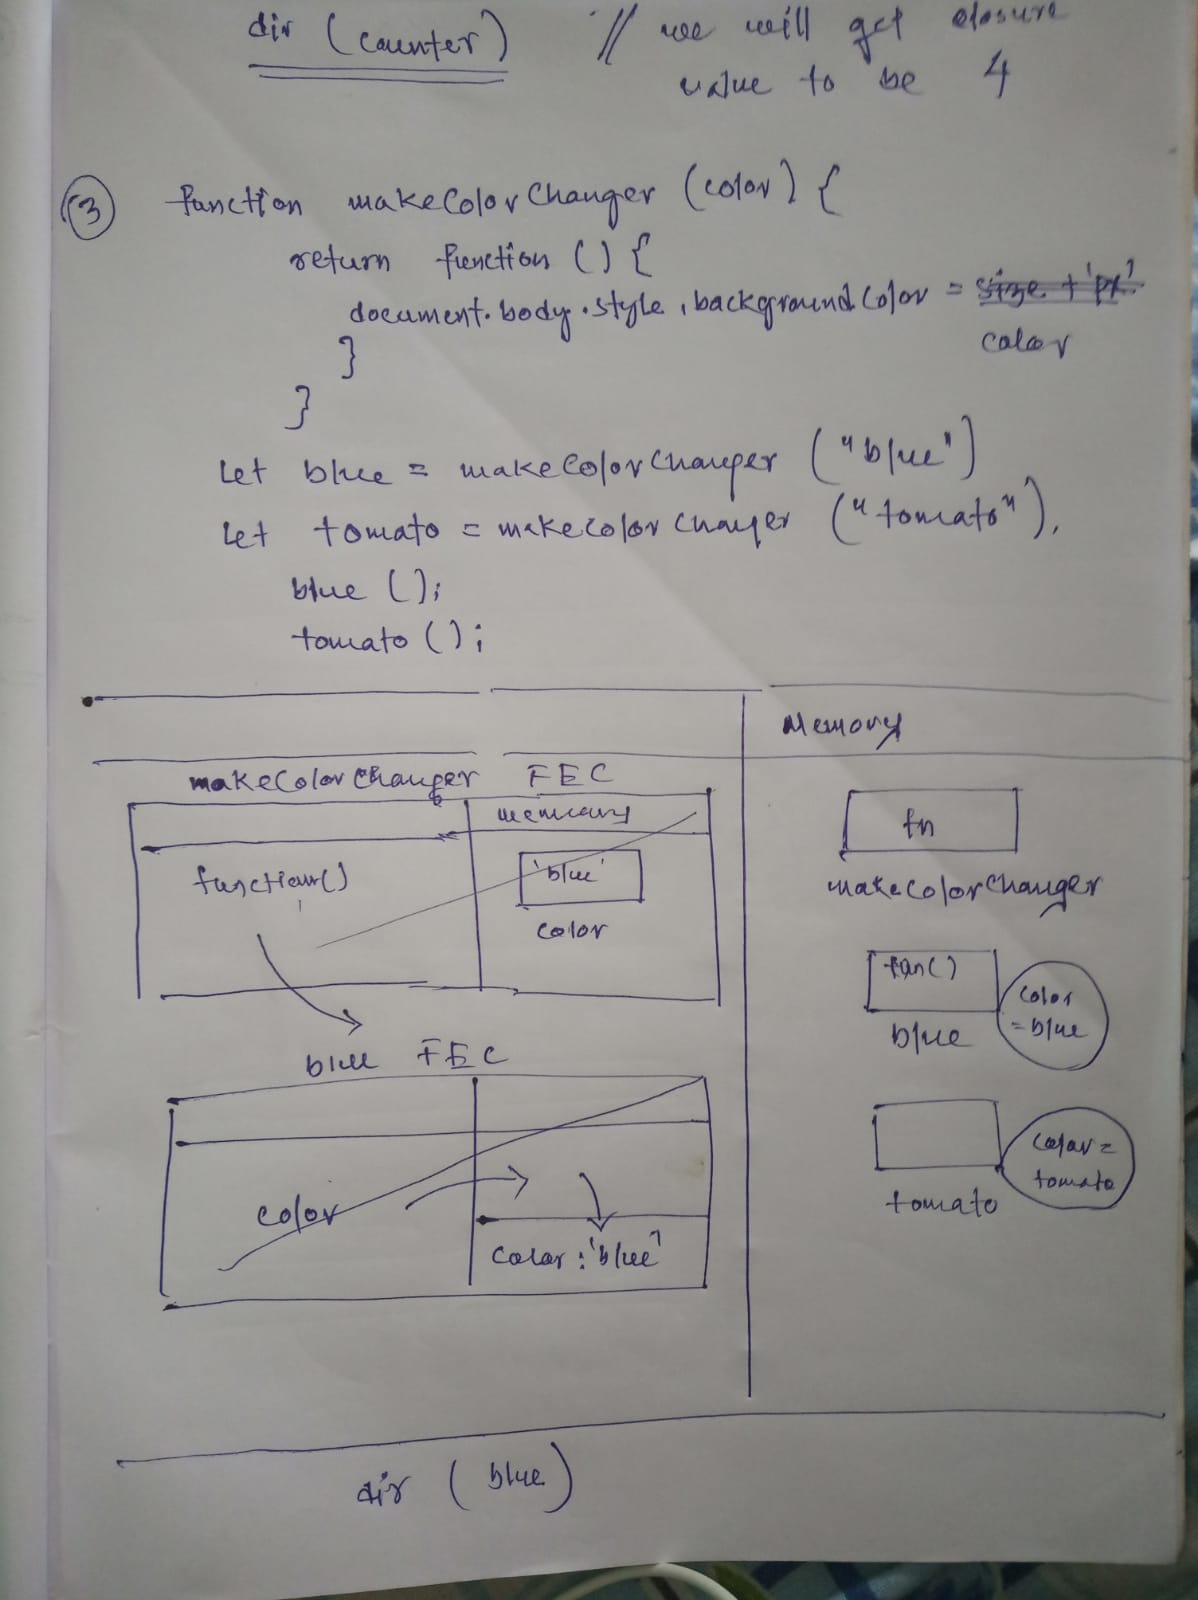 dir (counter) // we will get closure
value to be 4
3 function makeColorChanger (color) {
return function () {
document.body.style.backgroundColor = size + 'px'
color
}
}
Let blue = makeColorChanger ("blue")
Let tomato = makecolorchanger ("tomato"),
blue ();
tomato ();
Memory
makeColorChanger FEC
memory
fn
function()
'blue'
makecolorChanger
color
fun()
color
= blue
blue
blue FEC
color =
tomato
tomato
color
color : 'blue'
dir (blue)